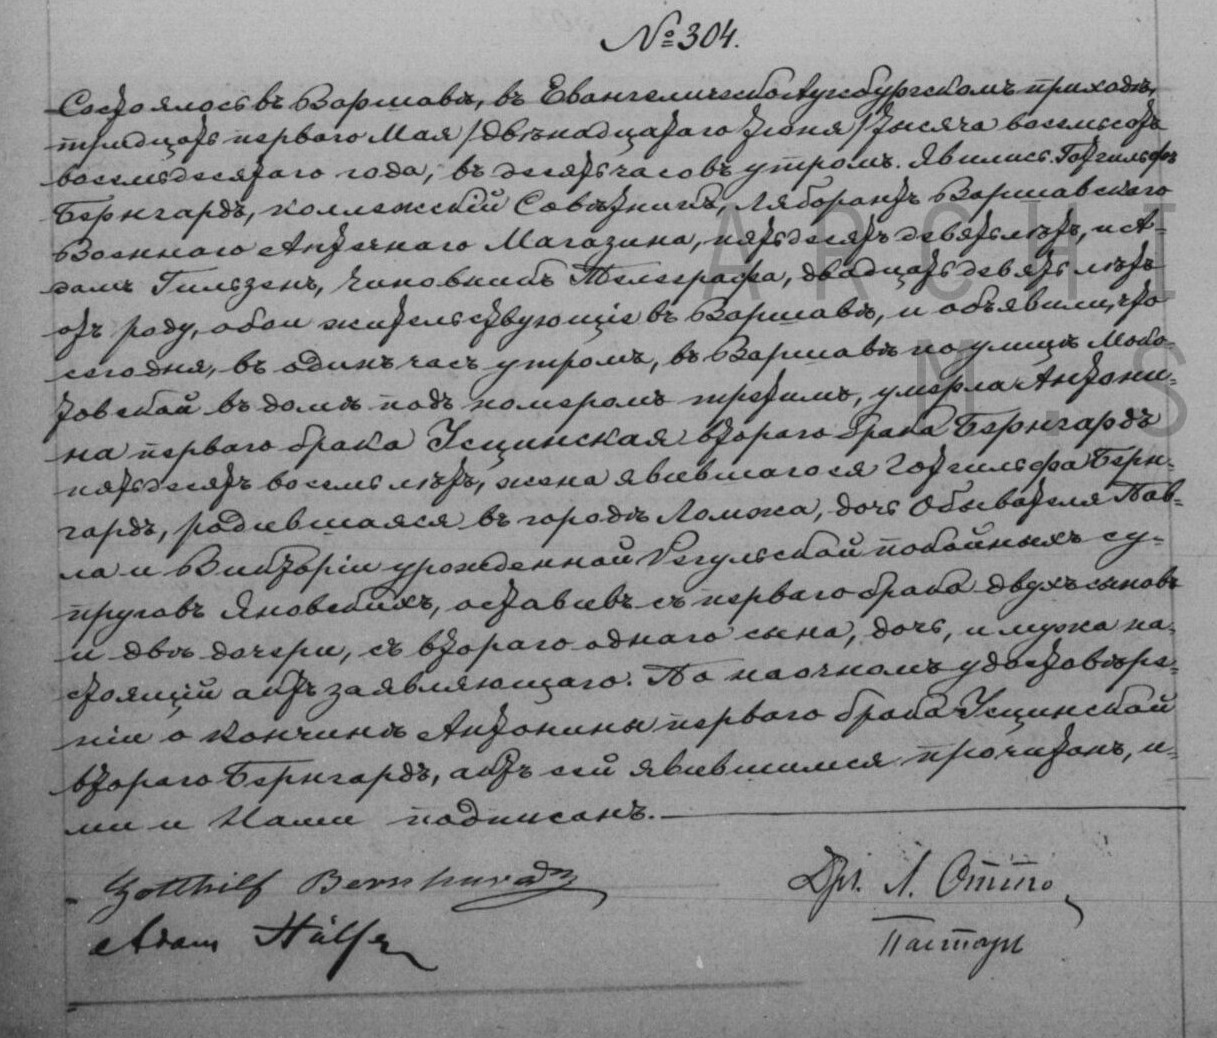 № 304.
Состоялось въ Варшавѣ, въ Евангелическо Аугсбургскомъ приходѣ,
тридцать перваго Мая /двѣнадцатаго Іюня/ тысяча восемьсотъ
восемьдесятаго года, въ десять часовъ утромъ. Явились Готгильфъ
Бернгардъ, коллежскій Совѣтникъ, Лаборантъ Варшавскаго
Военнаго Аптечнаго Магазина, пятьдесятъ девять лѣтъ, и А-
дамъ Гильзенъ, Чиновникъ Телеграфа, двадцать девять лѣтъ
отъ роду, обои жительствующіе въ Варшавѣ, и объявили, что
сего дня, въ одинъ часъ утромъ, въ Варшавѣ по улицѣ Моко-
товской въ домѣ подъ номеромъ третимъ, умерла Антони-
на перваго брака Усцинская втораго брака Бернгардъ
пятьдесятъ восемь лѣтъ, жена явившагося Готгильфа Берн-
гардъ, родившаяся въ городѣ Ломжа, дочь Обывателя Пав-
ла и Викторіи урожденной Регульской покойныхъ су-
пруговъ Яновскихъ, оставивъ съ перваго брака двухъ сыновъ
и двѣ дочери, съ втораго однаго сына, дочь, и мужа на-
стоящій актъ заявляющаго. По наочномъ удостовѣре-
ніи о кончинѣ Антонины перваго брака Усцинской
втораго Бернгардъ, актъ сей явившимся прочитанъ, и-
ми и Нами подписанъ.
Gotthilf Bernhardt
Дръ. Л. Отто,
Adam Hülsen
Пасторъ
ARCHI
M. S